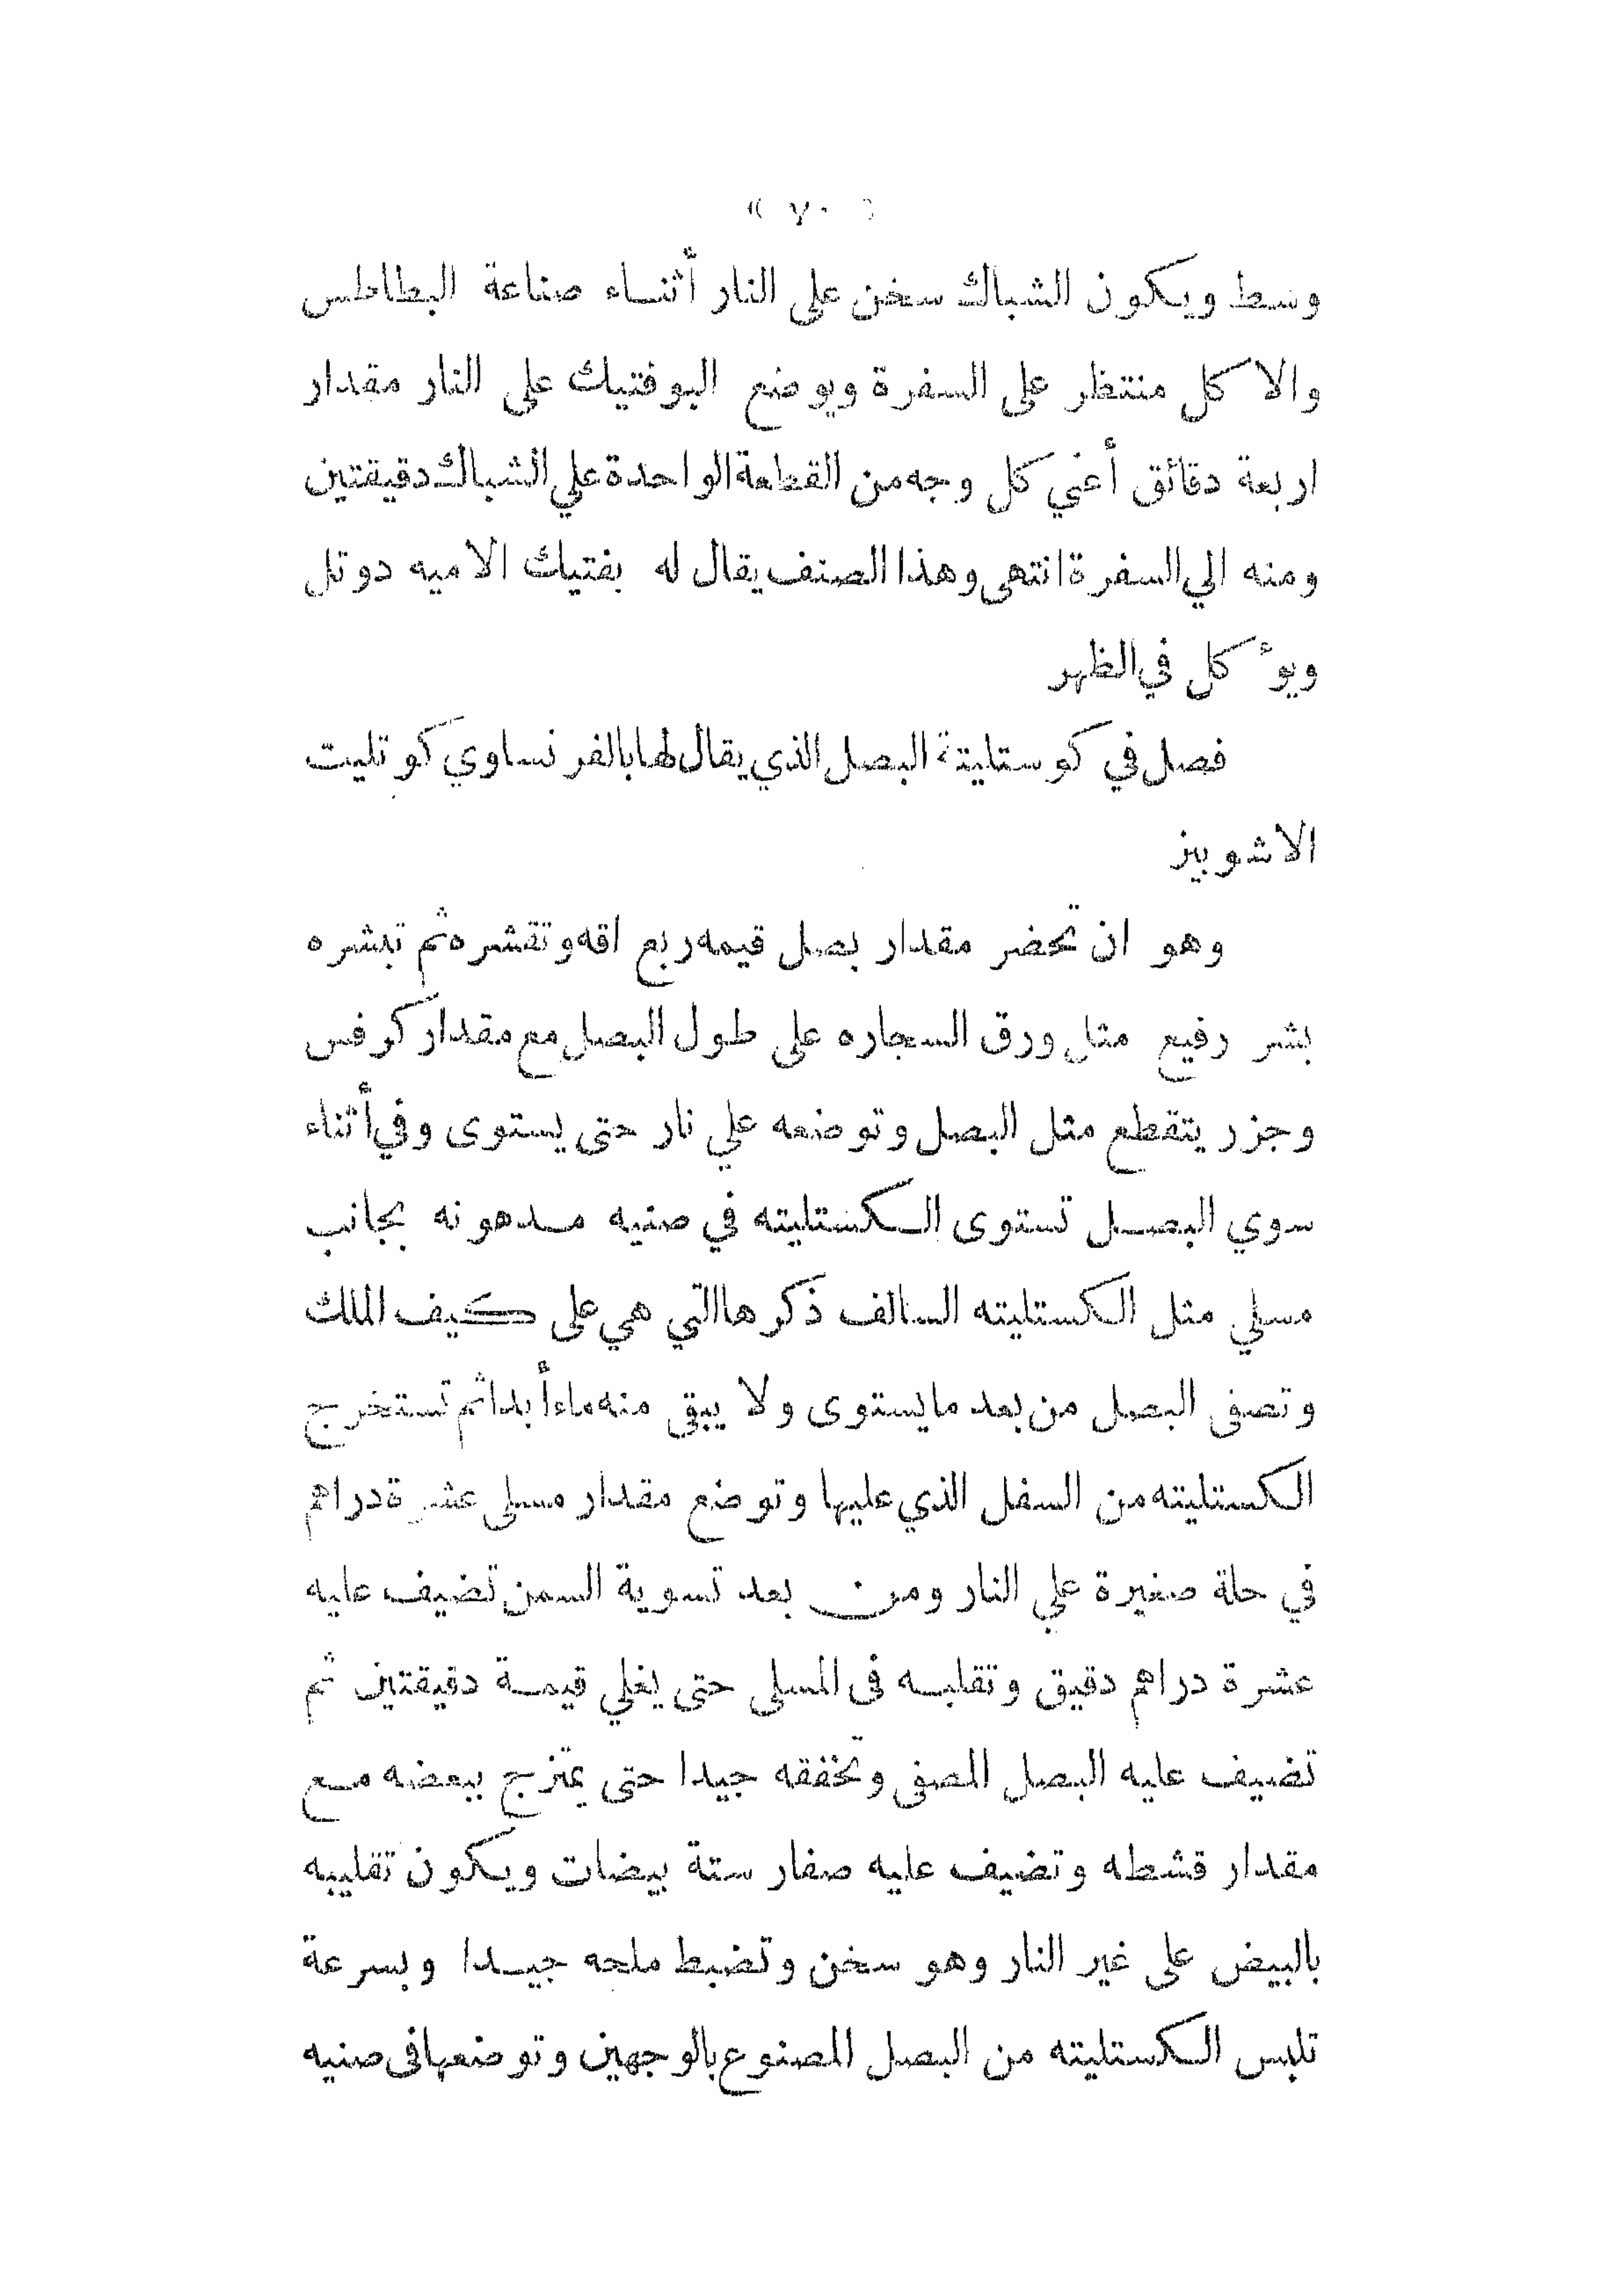 « ٧٠ »
وسط ويكون الشباك سخن على النار أثناء صناعة البطاطس
والا كل منتظر على السفرة ويوضع البوفتيك على النار مقدار
اربعة دقائق أعني كل وجه من القطعة الواحدة علي الشباك دقيقتين
ومنه الي السفرة انتهى وهذا الصنف يقال له بفتيك الاميه دوتل
ويوٴكل في الظهر
فصل في كوستليتة البصل الذي يقال لها بالفرنساوي كوتليت
الاشوبيز
وهو ان تحضر مقدار بصل قيمه ربع اقه وتقشره ثم تبشره
بشر رفيع مثل ورق السجاره على طول البصل مع مقدار كرفس
وجزر يتقطع مثل البصل وتوضعه علي نار حتى يستوى وفي أثناء
سوي البصل تستوى الكستليته في صنيه مدهونه بجانب
مسلي مثل الكستليته السالف ذكرها التي هي على كيف الملك
وتصفى البصل من بعد ما يستوى ولا يبقى منه ماء أبدا ثم تستخرج
الكستليته من السفل الذي عليها وتوضع مقدار مسلى عشرة دراهم
في حلة صغيرة علي النار ومن بعد تسوية السمن تضيف عليه
عشرة دراهم دقيق وتقلبه فى المسلى حتى يغلي قيمة دقيقتين ثم
تضيف عليه البصل المصفى وتخفقه جيدا حتى يمتزج ببعضه مع
مقدار قشطه وتضيف عليه صفار ستة بيضات ويكون تقليبه
بالبيض على غير النار وهو سخن وتضبط ملحه جيدا وبسرعة
تلبس الكستليته من البصل المصنوع بالوجهين وتوضعها فى صنيه